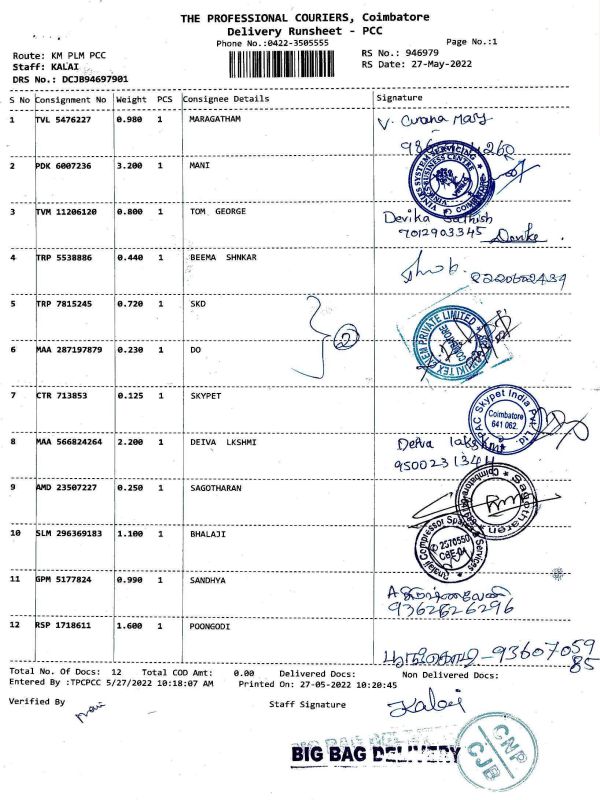 THE PROFESSIONAL COURIERS, Coimbatore
Delivery Runsheet - PCC
Phone No.:0422-3505555
Page No.:1
Route: KM PLM PCC
RS No.: 946979
Staff: KALAI
RS Date: 27-May-2022
DRS No.: DCJB94697901
S No Consignment No Weight PCS Consignee Details Signature
1 TVL 5476227 0.980 1 MARAGATHAM
V.
2 PDK 6007236 3.200 1 MANI
VINIES SYSTEM SERVICING
3 TVM 11206120 0.800 1 TOM GEORGE
Devika Sathish
7012903345
4 TRP 5538886 0.440 1 BEEMA SHNKAR
5 TRP 7815245 0.720 1 SKD
2
6 MAA 287197879 0.230 1 DO
PRIVATE LIMITED
7 CTR 713853 0.125 1 SKYPET
Skypet India Pvt. Ltd.
Coimbatore
641 062.
8 MAA 566824264 2.200 1 DEIVA LKSHMI
Deiva lakshmi
9 AMD 23507227 0.250 1 SAGOTHARAN
Sagotharan
10 SLM 296369183 1.100 1 BHALAJI
2570550
CBE-04
11 GPM 5177824 0.990 1 SANDHYA
9362826296
12 RSP 1718611 1.600 1 POONGODI
பூங்கொடி - 93607059
85
Total No. Of Docs: 12 Total COD Amt: 0.00 Delivered Docs: Non Delivered Docs:
Entered By :TPCPCC 5/27/2022 10:18:07 AM Printed On: 27-05-2022 10:20:45
Verified By Staff Signature Kalai
BIG BAG DELIVERY
CNP
CJB